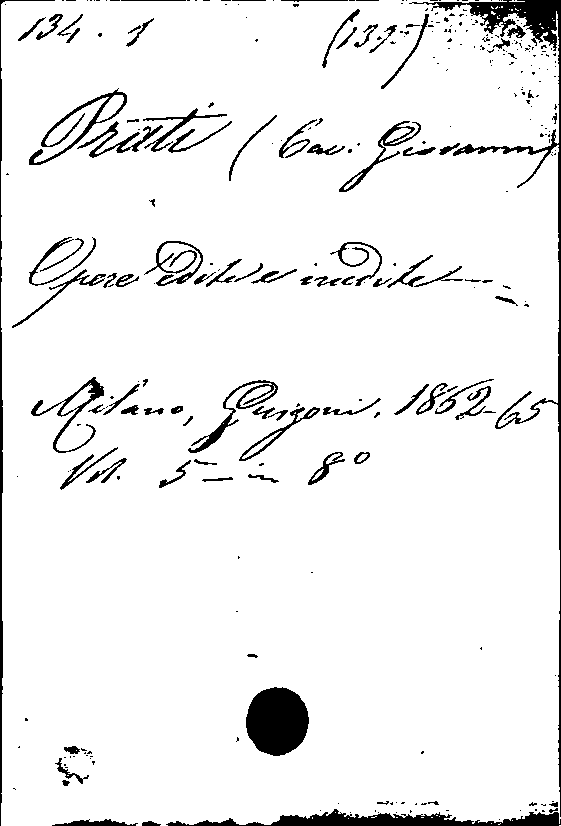 134 . 1 (1395)
Prati (Cav: Giovanni)
Opere edite e inedite — .
Milano, Guigoni, 1862-65
Vol. 5 — in 8º